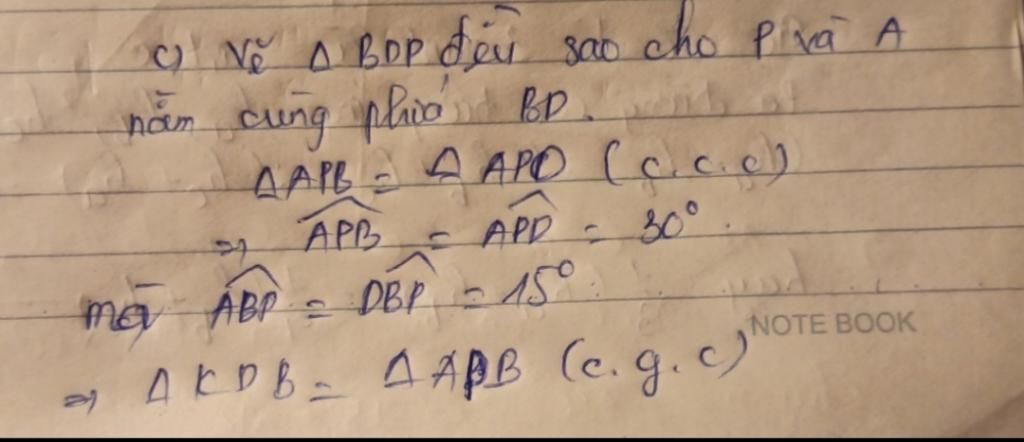 c) Vẽ Δ BDP đều sao cho P và A
nằm cùng phía BD.
ΔAPB = Δ APD (c.c.c)
=> APB = APD = 30°.
mà ABP = DBP = 15°
NOTE BOOK
=> Δ KDB = Δ APB (c.g.c)